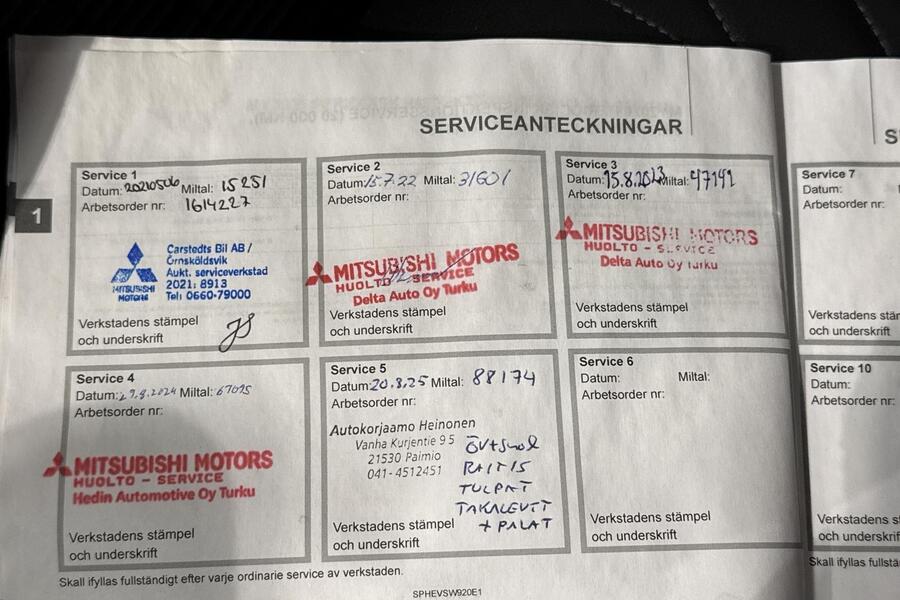 SERVICEANTECKNINGAR
1
Service 1
Datum: 20210506 Miltal: 15251
Arbetsorder nr: 1614227
MITSUBISHI
MOTORS
Carstedts Bil AB /
Örnsköldsvik
Aukt. serviceverkstad
2021: 8913
Tel: 0660-79000
Verkstadens stämpel
och underskrift
Service 2
Datum: 15.7.22 Miltal: 31601
Arbetsorder nr:
MITSUBISHI MOTORS
HUOLTO - SERVICE
Delta Auto Oy Turku
Verkstadens stämpel
och underskrift
Service 3
Datum: 15.8.2023 Miltal: 47141
Arbetsorder nr:
MITSUBISHI MOTORS
HUOLTO - SERVICE
Delta Auto Oy Turku
Verkstadens stämpel
och underskrift
Service 7
Datum:
Arbetsorder nr:
Verkstadens
och underskrift
Service 4
Datum: 29.8.2024 Miltal: 67095
Arbetsorder nr:
MITSUBISHI MOTORS
HUOLTO - SERVICE
Hedin Automotive Oy Turku
Verkstadens stämpel
och underskrift
Service 5
Datum: 20.8.25 Miltal: 88174
Arbetsorder nr:
Autokorjaamo Heinonen
Vanha Kurjentie 95
21530 Paimio
041-4512451
ÖV+SUOD
RAITIS
TULPAT
TAKALEVYT
+ PALAT
Verkstadens stämpel
och underskrift
Service 6
Datum: Miltal:
Arbetsorder nr:
Verkstadens stämpel
och underskrift
Service 10
Datum:
Arbetsorder nr:
Verkstadens
och underskrift
Skall ifyllas fullständigt efter varje ordinarie service av verkstaden.
Skall ifyllas fullstän
SPHEVSW920E1